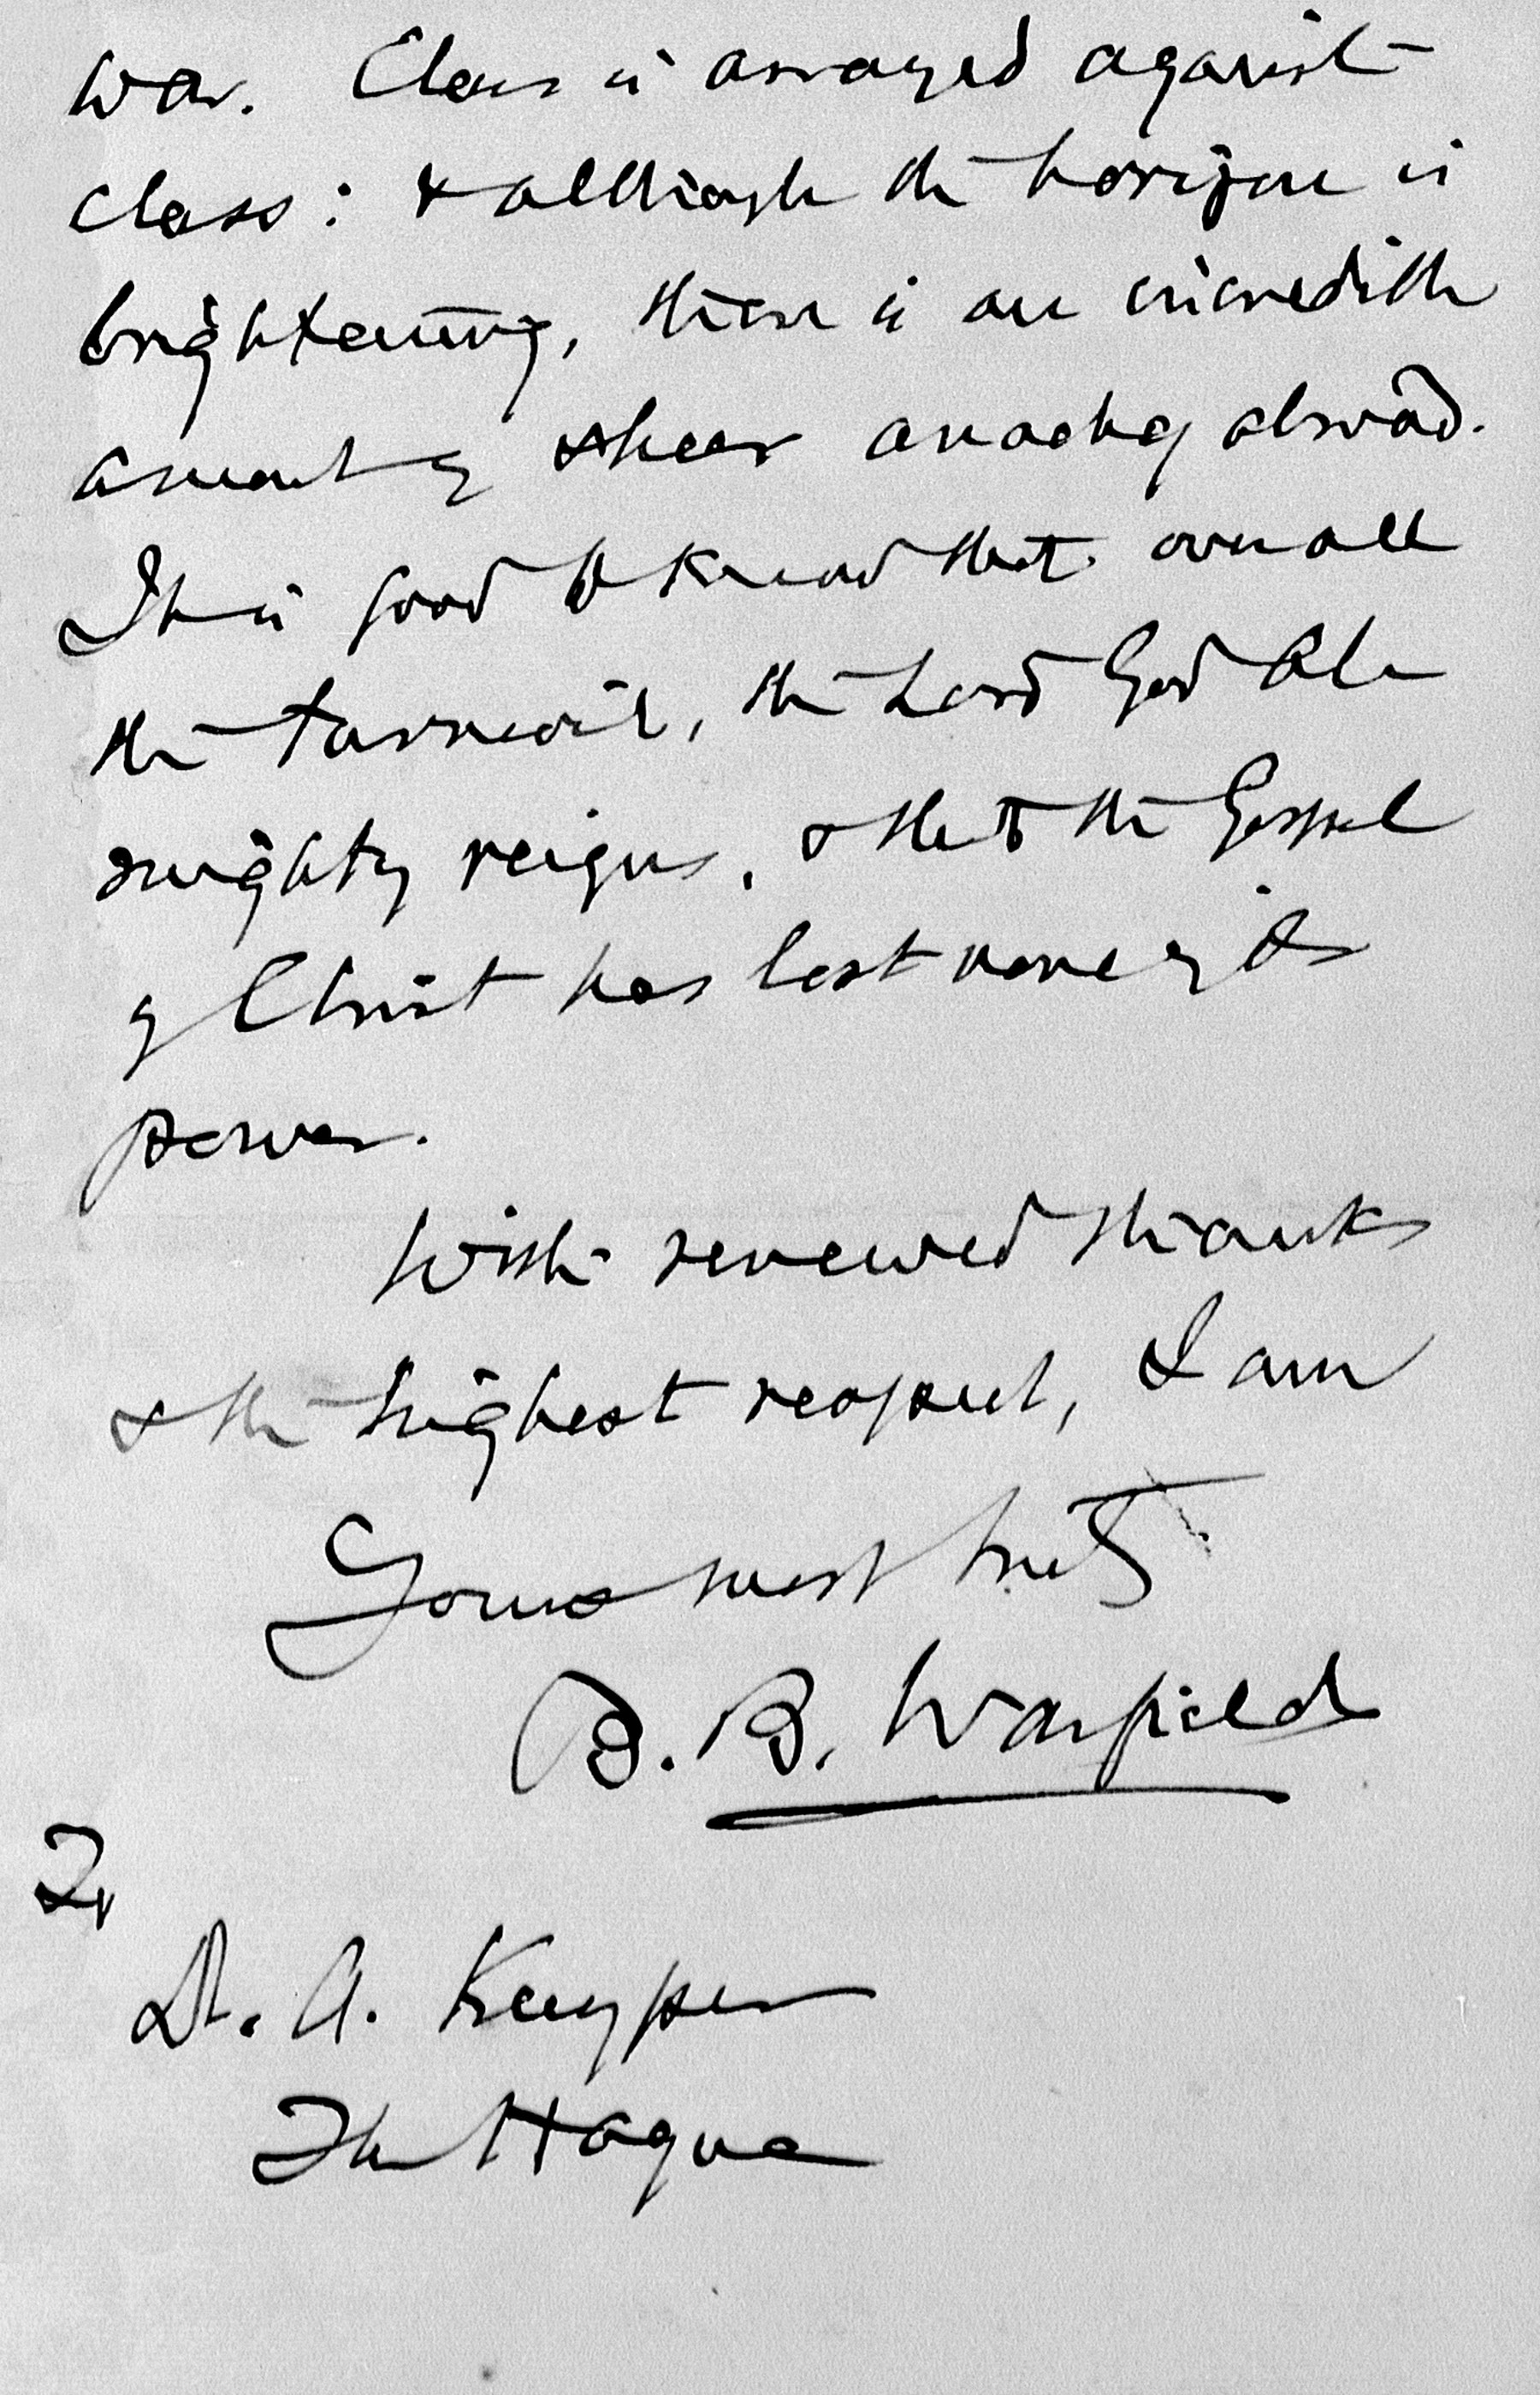 war. Class is arrayed against
class: & although the horizon is
brightening, there is an incredible
amount of sheer anarchy abroad.
It is good to know that over all
the turmoil, the Lord God Al-
mighty reigns, & that the Gospel
of Christ has lost none of its
power.
With renewed thanks
& the highest respect, I am
Yours most truly
B. B. Warfield
To
Dr. A. Kuyper
The Hague